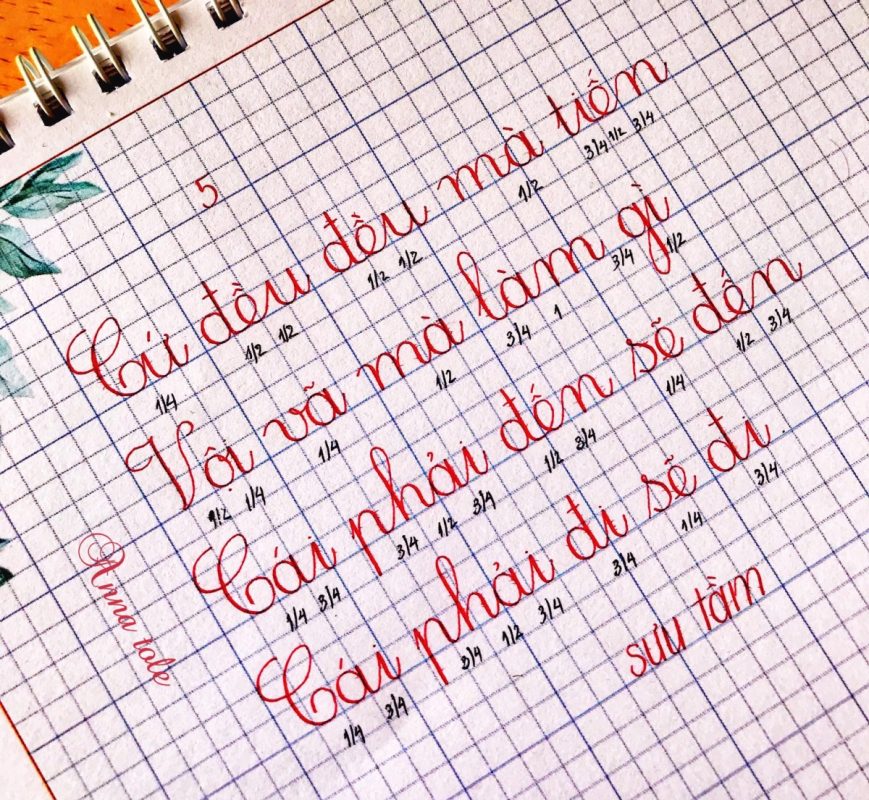 5
Cứ đều đều mà tiến
1/4 1/2 1/2 1/2 1/2 1/2 3/4 1/2 3/4
Vội vã mà làm gì
1/2 1/4 1/4 1/2 3/4 1 3/4 1/2
Cái phải đến sẽ đến
1/4 3/4 3/4 1/2 3/4 1/2 3/4 1/4 1/2 3/4
Cái phải đi sẽ đi
1/4 3/4 3/4 1/2 3/4 3/4 1/4 3/4
sưu tầm
Anna tole